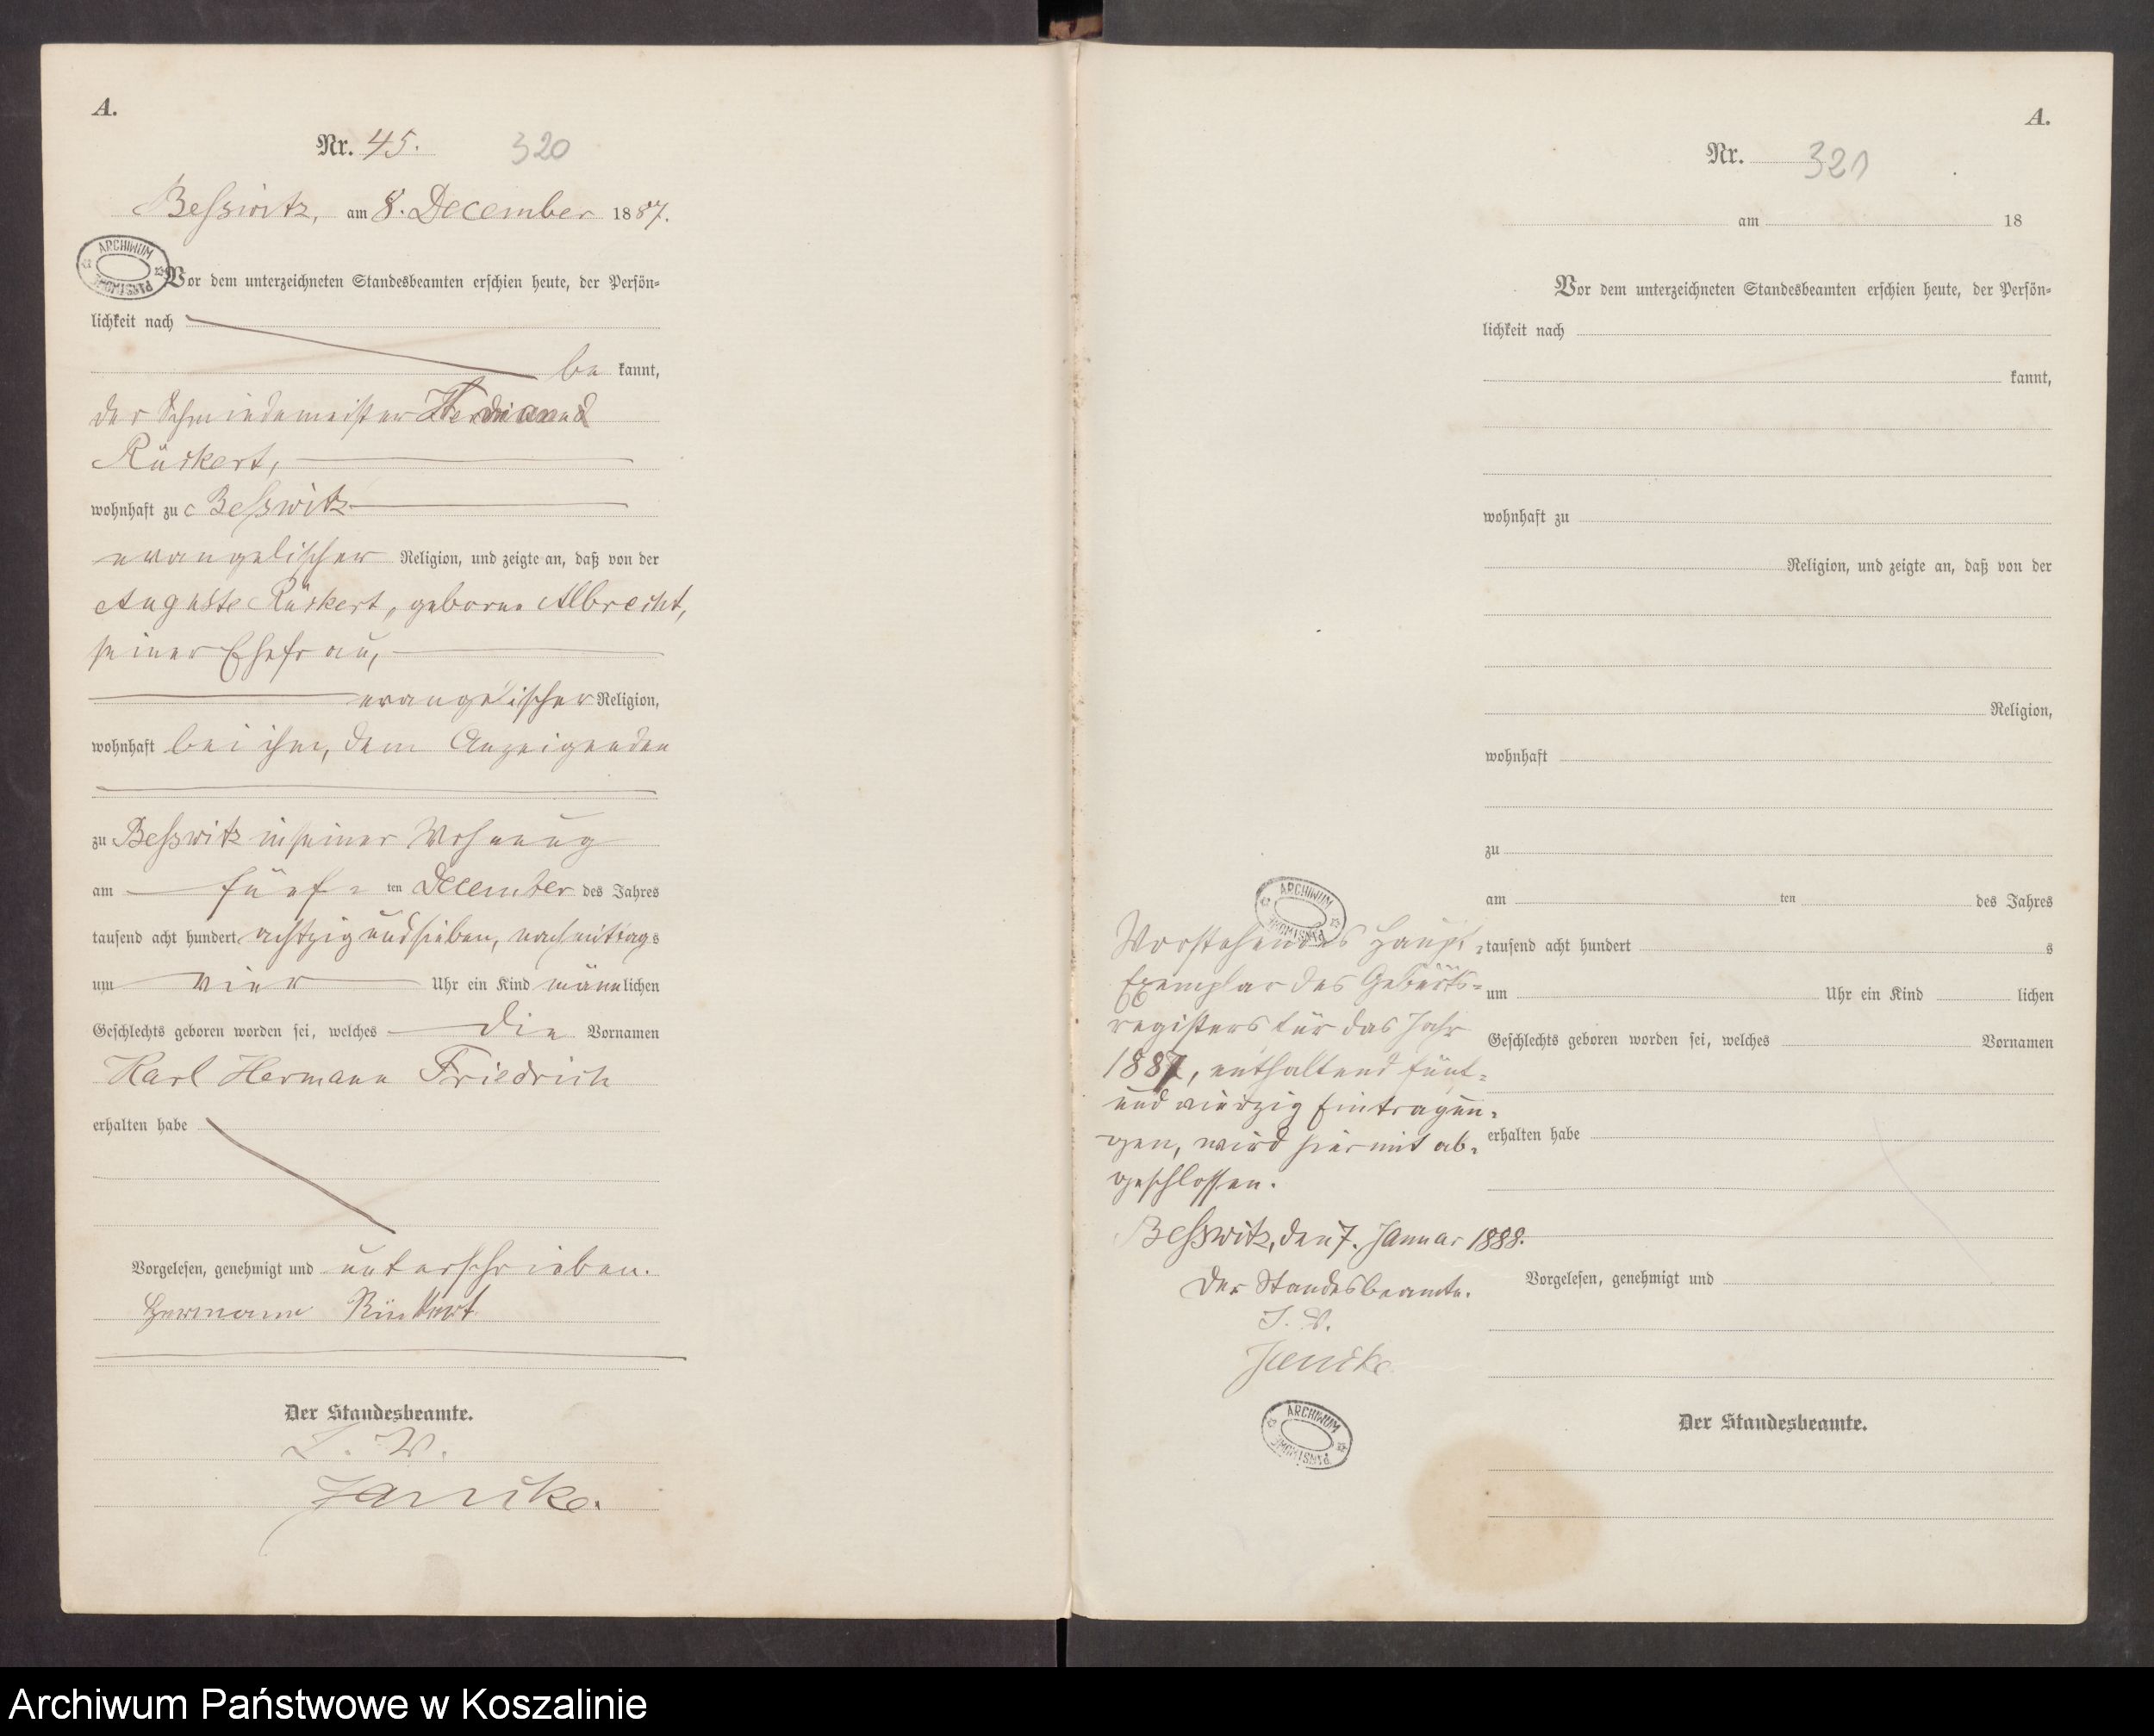 A.
Nr. 45.
320
Beßwitz, am 8. December 1887.
ARCHIWUM PAŃSTWOWE
Vor dem unterzeichneten Standesbeamten erschien heute, der Persön-
lichkeit nach
be kannt,
der Schmiedemeister
Rückert,
wohnhaft zu Beßwitz
evangelischer Religion, und zeigte an, daß von der
Auguste Rückert, geborne Albrecht,
seiner Ehefrau,
evangelischer Religion,
wohnhaft bei ihm, dem Anzeigenden
zu Beßwitz in seiner Wohnung
am fünf- ten December des Jahres
tausend acht hundert achtzig und sieben, nachmittags
um vier Uhr ein Kind männlichen
Geschlechts geboren worden sei, welches die Vornamen
Karl Hermann Friedrich
erhalten habe
Vorgelesen, genehmigt und unterschrieben.
Hermann Rückert
Der Standesbeamte.
I. V.
Janicke.
A.
Nr.
321
am 18
Vor dem unterzeichneten Standesbeamten erschien heute, der Persön-
lichkeit nach
kannt,
wohnhaft zu
Religion, und zeigte an, daß von der
Religion,
wohnhaft
zu
am ten des Jahres
tausend acht hundert s
um Uhr ein Kind lichen
Geschlechts geboren worden sei, welches Vornamen
erhalten habe
Vorgelesen, genehmigt und
Der Standesbeamte.
ARCHIWUM PAŃSTWOWE
Vorstehendes Haupt-
Exemplar des Geburts-
registers für das Jahr
1887, enthaltend fünf-
und vierzig Eintragun-
gen, wird hiermit ab-
geschlossen.
Beßwitz, den 7. Januar 1888.
Der Standesbeamte.
I. V.
Janicke
ARCHIWUM PAŃSTWOWE
Archiwum Państwowe w Koszalinie